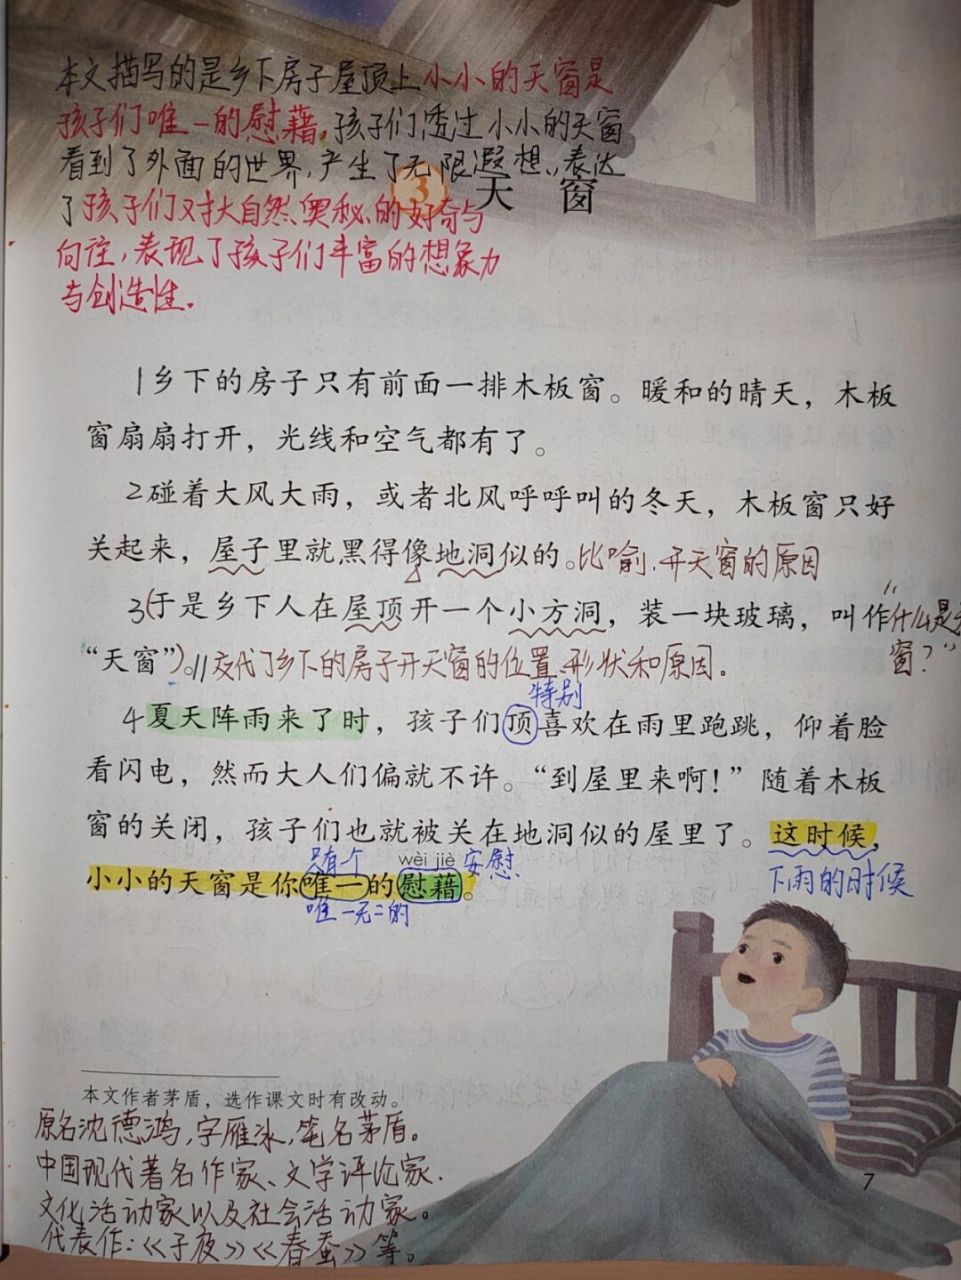 本文描写的是乡下房子屋顶上小小的天窗是
孩子们唯一的慰藉。孩子们透过小小的天窗
看到了外面的世界,产生了无限遐想,表达
3 天 窗
了孩子们对大自然奥秘的好奇与
向往,表现了孩子们丰富的想象力
与创造性.
1乡下的房子只有前面一排木板窗。暖和的晴天,木板
窗扇扇打开,光线和空气都有了。
2碰着大风大雨,或者北风呼呼叫的冬天,木板窗只好
关起来,屋子里就黑得像地洞似的。比喻.开天窗的原因
3(于是乡下人在屋顶开一个小方洞,装一块玻璃,叫作“什么是天
“天窗”)。//交代了乡下的房子开天窗的位置.形状和原因. 窗?”
特别
4夏天阵雨来了时,孩子们顶喜欢在雨里跑跳,仰着脸
看闪电,然而大人们偏就不许。“到屋里来啊!”随着木板
窗的关闭,孩子们也就被关在地洞似的屋里了。这时候,
只有个 wèi jiè 安慰
小小的天窗是你唯一的慰藉。 下雨的时候
唯一无二的
本文作者茅盾,选作课文时有改动。
原名沈德鸿,字雁冰,笔名茅盾。
中国现代著名作家、文学评论家.
文化活动家以及社会活动家。
代表作:《子夜》《春蚕》等。
7